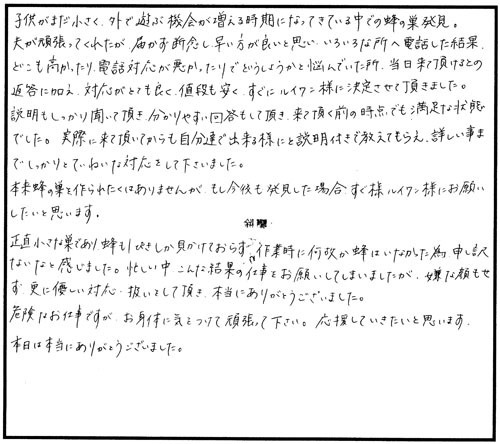 子供がまだ小さく、外で遊ぶ機会が増える時期になってきている中での蜂の巣発見。
夫が頑張ってくれたが、届かず断念し、早い方が良いと思い、いろいろな所へ電話した結果、
どこも高かったり、電話対応が悪かったりでどうしようかと悩んでいた所、当日来て頂けるとの
返答に加え、対応がとても良く、値段も安く、すぐにルイワン様に決定させて頂きました。
説明もしっかり聞いて頂き、分かりやすい回答もして頂き、来て頂く前の時点でも満足な状態
でした。実際に来て頂いてからも自分達で出来る様にと説明付きで教えてもらえ、詳しい事ま
でしっかりとていねいな対応をして下さいました。
本来蜂の巣を作られたくはありませんが、もし今後も発見した場合、すぐ様ルイワン様にお願い
したいと思います。
正直小さな巣であり蜂も1ぴきしか見かけておらず、作業時に何故か蜂はいなかった為、申し訳
ないなと感じました。忙しい中、こんな結果の仕事をお願いしてしまいましたが、嫌な顔もせ
ず、更に優しい対応・扱いをして頂き、本当にありがとうございました。
危険なお仕事ですが、お身体に気をつけて頑張って下さい。応援していきたいと思います。
本日は本当にありがとうございました。